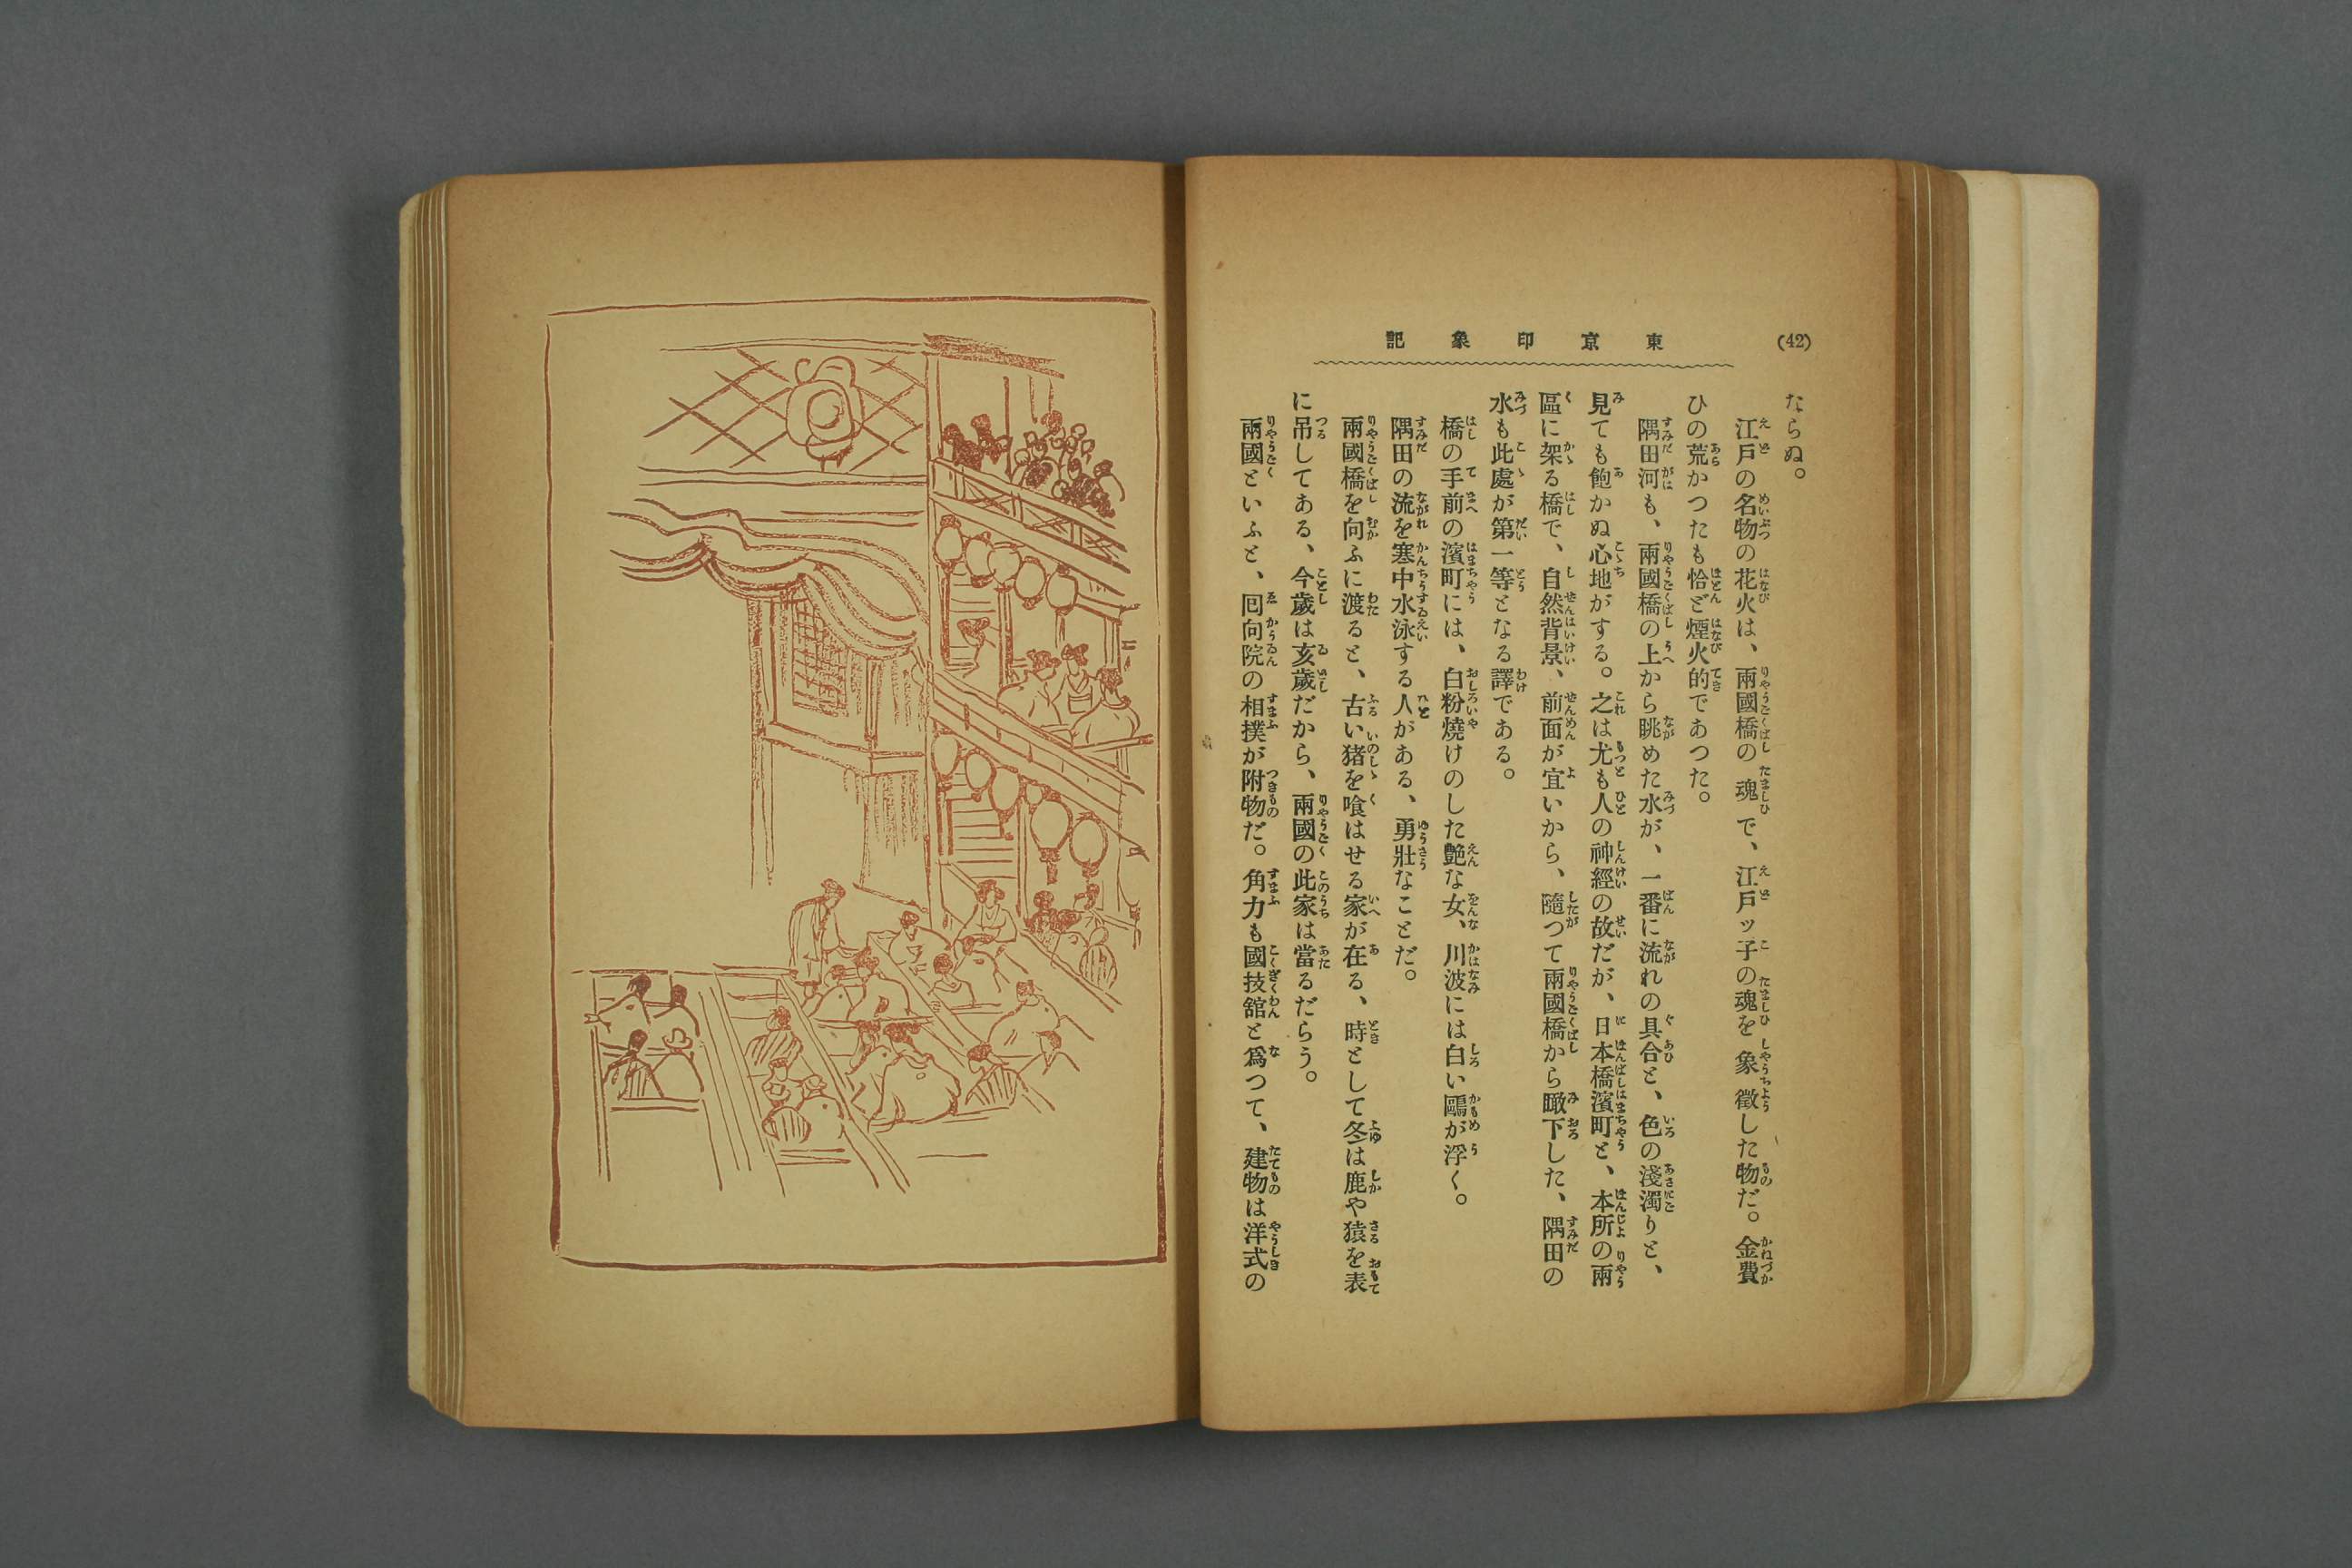 (42)
東京印象記
ならぬ。
江戸の名物の花火は、兩國橋の魂で、江戸ッ子の魂を象徵した物だ。金費
ひの荒かつたも恰ど煙火的であつた。
隅田河も、兩國橋の上から眺めた水が、一番に流れの具合と、色の淺濁りと、
見ても飽かぬ心地がする。之は尤も人の神經の故だが、日本橋濱町と、本所の兩
區に架る橋で、自然背景、前面が宜いから、隨つて兩國橋から瞰下した、隅田の
水も此處が第一等となる譯である。
橋の手前の濱町には、白粉燒けのした艶な女、川波には白い鷗が浮く。
隅田の流を寒中水泳する人がある、勇壯なことだ。
兩國橋を向ふに渡ると、古い猪を喰はせる家が在る、時として冬は鹿や猿を表
に吊してある、今歲は亥歲だから、兩國の此家は當るだらう。
兩國といふと、囘向院の相撲が附物だ。角力も國技舘と爲つて、建物は洋式の